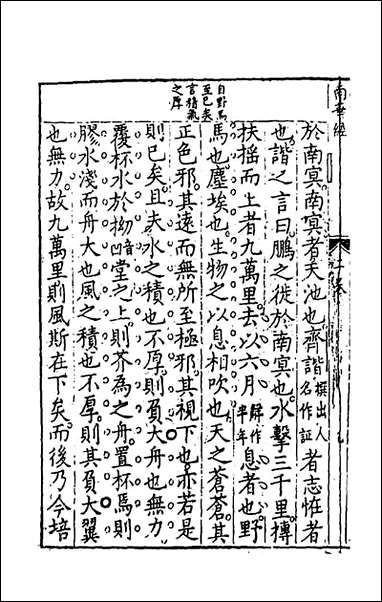 南華經
一卷
自野馬
至已矣
言積氣
之厚
於南冥南冥者天池也齊諧撰出人名作証者志恠者
也諧之言曰鵬之徙於南冥也水擊三千里摶
扶搖而上者九萬里去以六月解作半年息者也野
馬也塵埃也生物之以息相吹也天之蒼蒼其
正色邪其遠而無所至極邪其視下也亦若是
則已矣且夫水之積也不厚則負大舟也無力
覆杯水於坳凹音堂之上則芥為之舟置杯焉則
膠水淺而舟大也風之積也不厚則其負大翼
也無力故九萬里則風斯在下矣而後乃今培